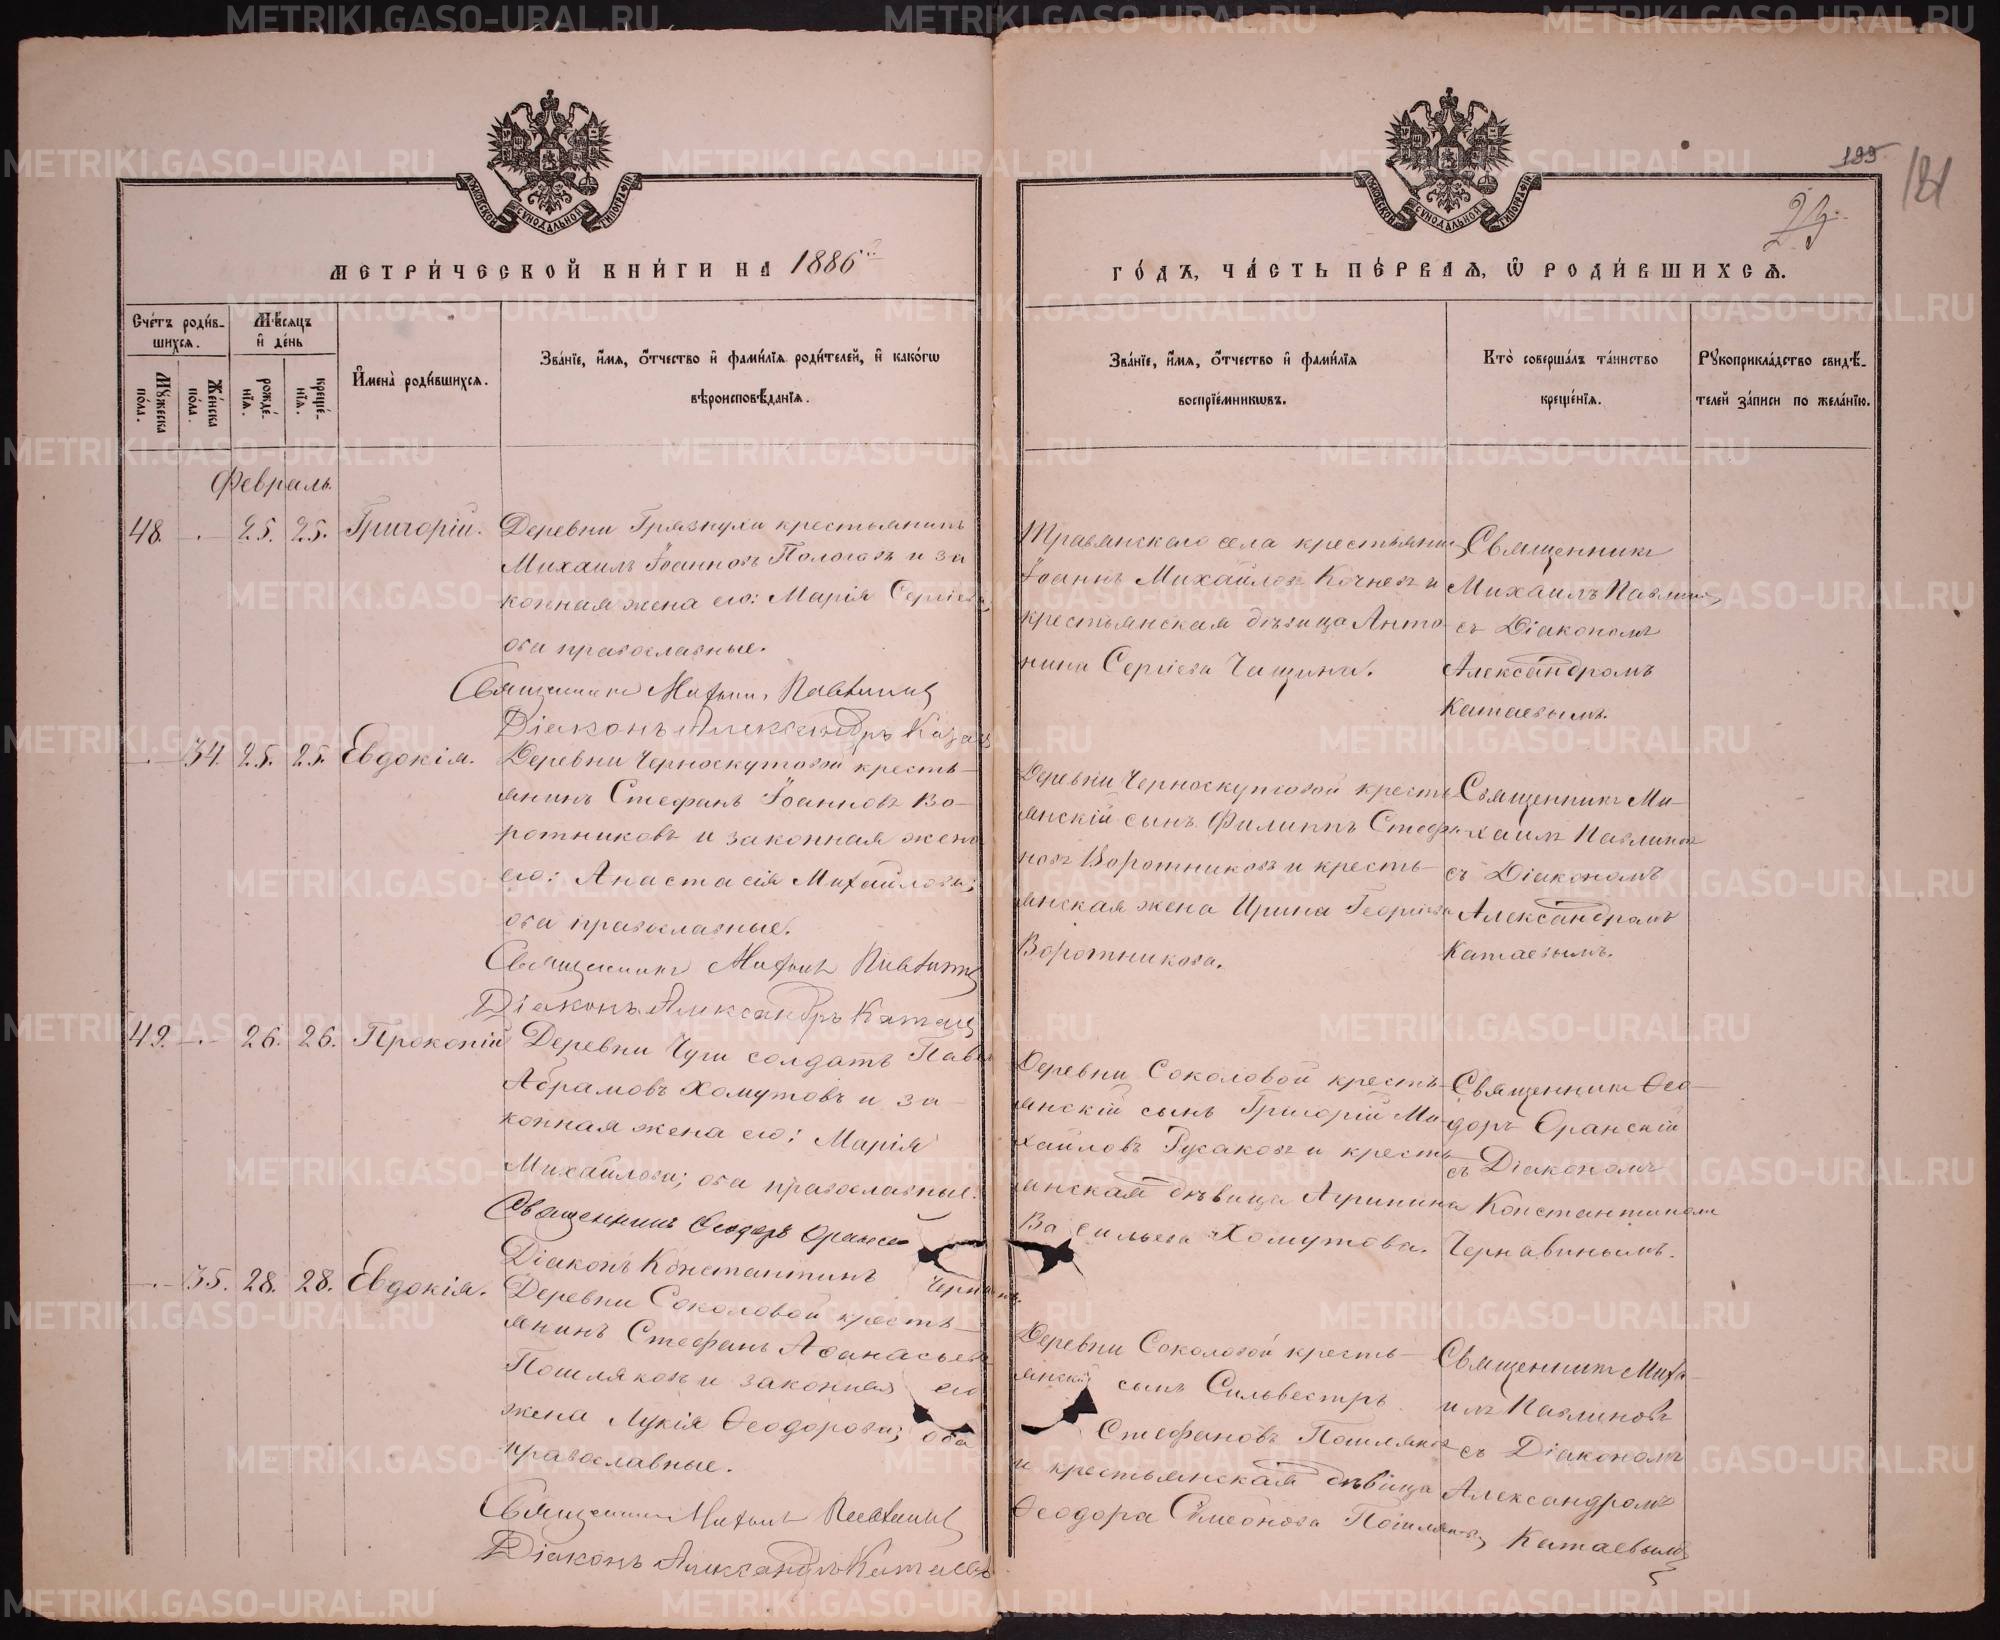 МЕТРИКИ.GASO-URAL.RU
199.
181
23.
МОСКОВСКОЙ СѴНОДАЛЬНОЙ ТИПОГРАФІИ
МОСКОВСКОЙ СѴНОДАЛЬНОЙ ТИПОГРАФІИ
МЕТРИ́ЧЕСКОЙ КНИ́ГИ НА 1886й
ГО́ДЪ, ЧА́СТЬ ПЕ́РВАЯ, Ѽ РОДИ́ВШИХСЯ.
Сче́тъ роди́в-
шихся.
Мѣ́сяцъ
и҆ де́нь
Мꙋжеска
по́ла.
Же́нска
по́ла.
рожде́-
нїя.
креще́-
нїя.
И҆мена̀ роди́вшихся.
Зва́нїе, и҆́мя, ѻ҆́тчество и҆ фами́лїя роди́телей, и҆ како́гѡ
вѣроисповѣ́данїя.
Зва́нїе, и҆́мя, ѻ҆́тчество и҆ фами́лїя
воспрїе́мникѡвъ.
Кто̀ соверша́лъ та́инство
креще́нїя.
Рꙋкоприкла́дство свидѣ́-
телей за́писи по жела́нїю.
Февраль
48. -.- 25. 25. Григорій.
Деревни Грязнухи крестьянинъ
Михаилъ Іоанновъ Пологовъ и за
конная жена его: Марія Сергіева,
оба православные.
Священникъ Михаилъ Павлиновъ
Діаконъ Александръ Катаевъ
Травянскаго села крестьянин
Іоаннъ Михайловъ Кочневъ и
крестьянская дѣвица Анто
нина Сергіева Чащина.
Священникъ
Михаилъ Павлинов
съ Діакономъ
Александромъ
Катаевымъ.
-.- 34. 25. 25. Евдокія.
Деревни Черноскутовой кресть-
янинъ Стефанъ Іоанновъ Во-
ротниковъ и законная жена
его: Анастасія Михайлова;
оба православные.
Священникъ Михаилъ Павлиновъ
Діаконъ Александръ Катаев
Деревни Черноскутовой кресть-
янскій сынъ Филиппъ Стефа-
новъ Воротниковъ и кресть-
янская жена Ирина Георгіева
Воротникова.
Священникъ Ми-
хаилъ Павлинов
съ Діакономъ
Александромъ
Катаевымъ.
49. -.- 26. 26. Прокопій
Деревни Чуги солдатъ Павел
Абрамовъ Хомутовъ и за-
конная жена его: Марія
Михайлова; оба православные.
Священникъ Ѳеодоръ Оранскі
Діаконъ Константинъ Чернавинъ.
Деревни Соколовой кресть-
янскій сынъ Григорій Ми-
хайловъ Русаковъ и кресть-
янская дѣвица Агрипина
Васильева Хомутова.
Священникъ Ѳео-
доръ Оранскій
съ Діакономъ
Константиномъ
Чернавинымъ.
-.- 35. 28. 28. Евдокія.
Деревни Соколовой кресть-
янинъ Стефанъ Аѳанасьев
Пошляковъ и законная его
жена Лукія Ѳеодорова; оба
православные.
Священникъ Михаилъ Павлиновъ
Діаконъ Александръ Катаевъ
Деревни Соколовой кресть-
янскій сынъ Сильвестръ
Стефановъ Пошляковъ
и крестьянская дѣвица
Ѳеодора Симеонова Пошлякова
Священникъ Миха-
илъ Павлиновъ
съ Діакономъ
Александромъ
Катаевымъ